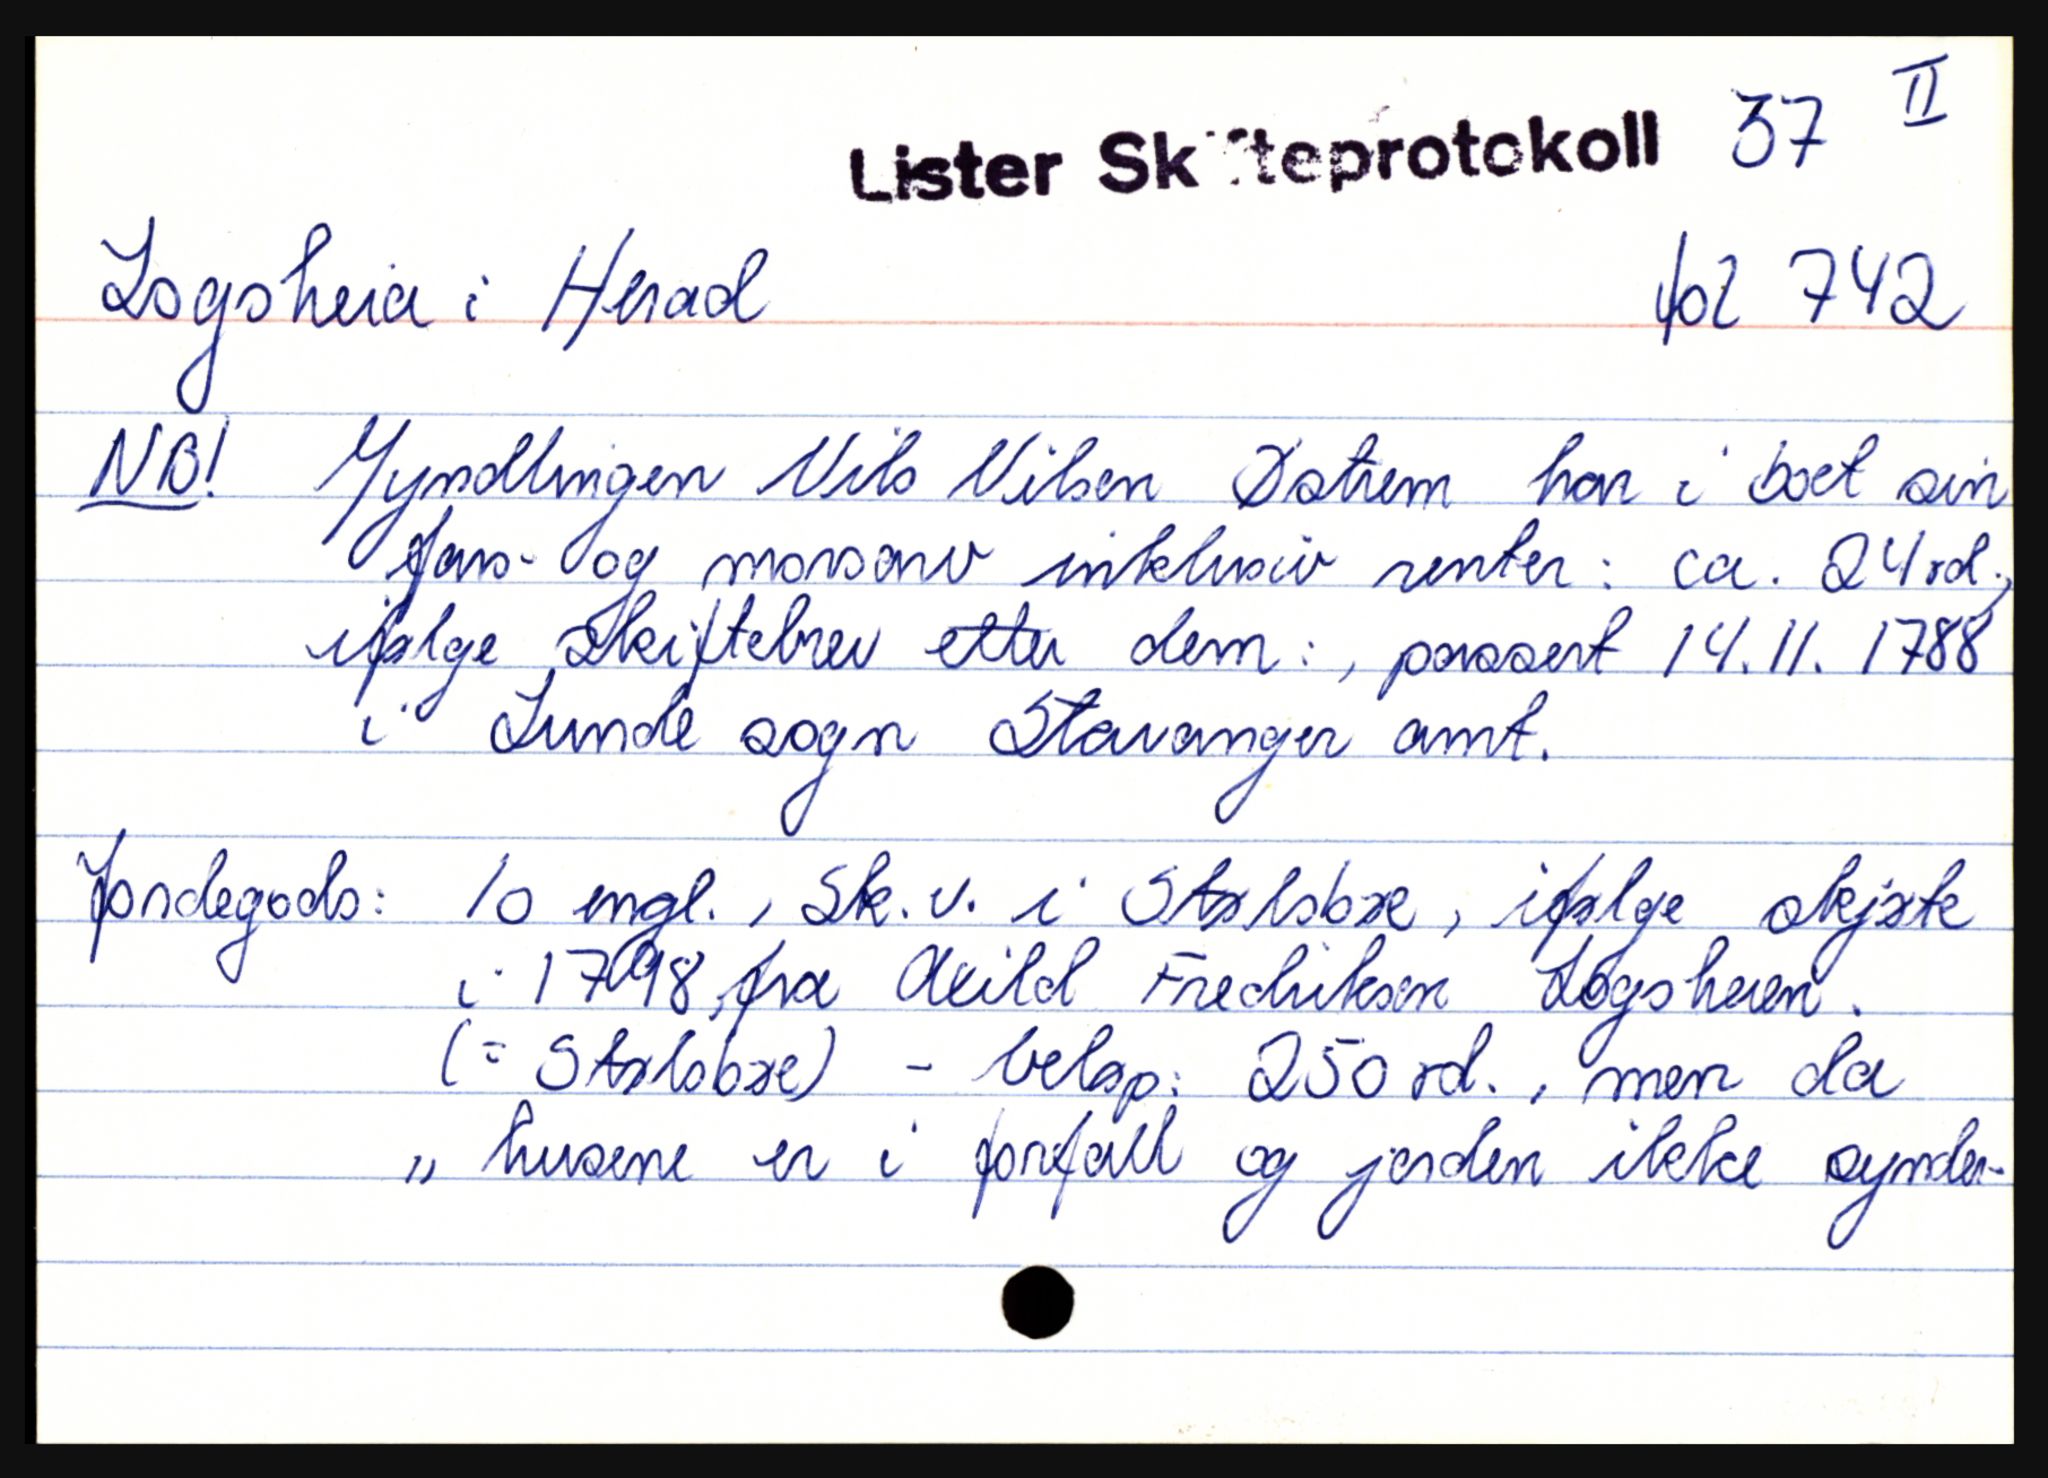 II
Lister Skifteprotokoll 37
Logsheia i Herad fol 742
NB! Myndlingen Nils Nilsen Østrem har i boet sin
fars- og morsarv inklusiv renter: ca. 24 rd.,
ifølge skiftebrev etter dem:, passert 14.11.1788
i Lunde sogn Stavanger amt.
Jordegods: 10 engl., Sk.v. i Stølsbøe, ifølge skjøte
i 1798, fra Aeild Fredriksen Logsheien.
(= Stølsbøe) - beløp: 250 rd., men da
„ husene er i forfall og jorden ikke synder-